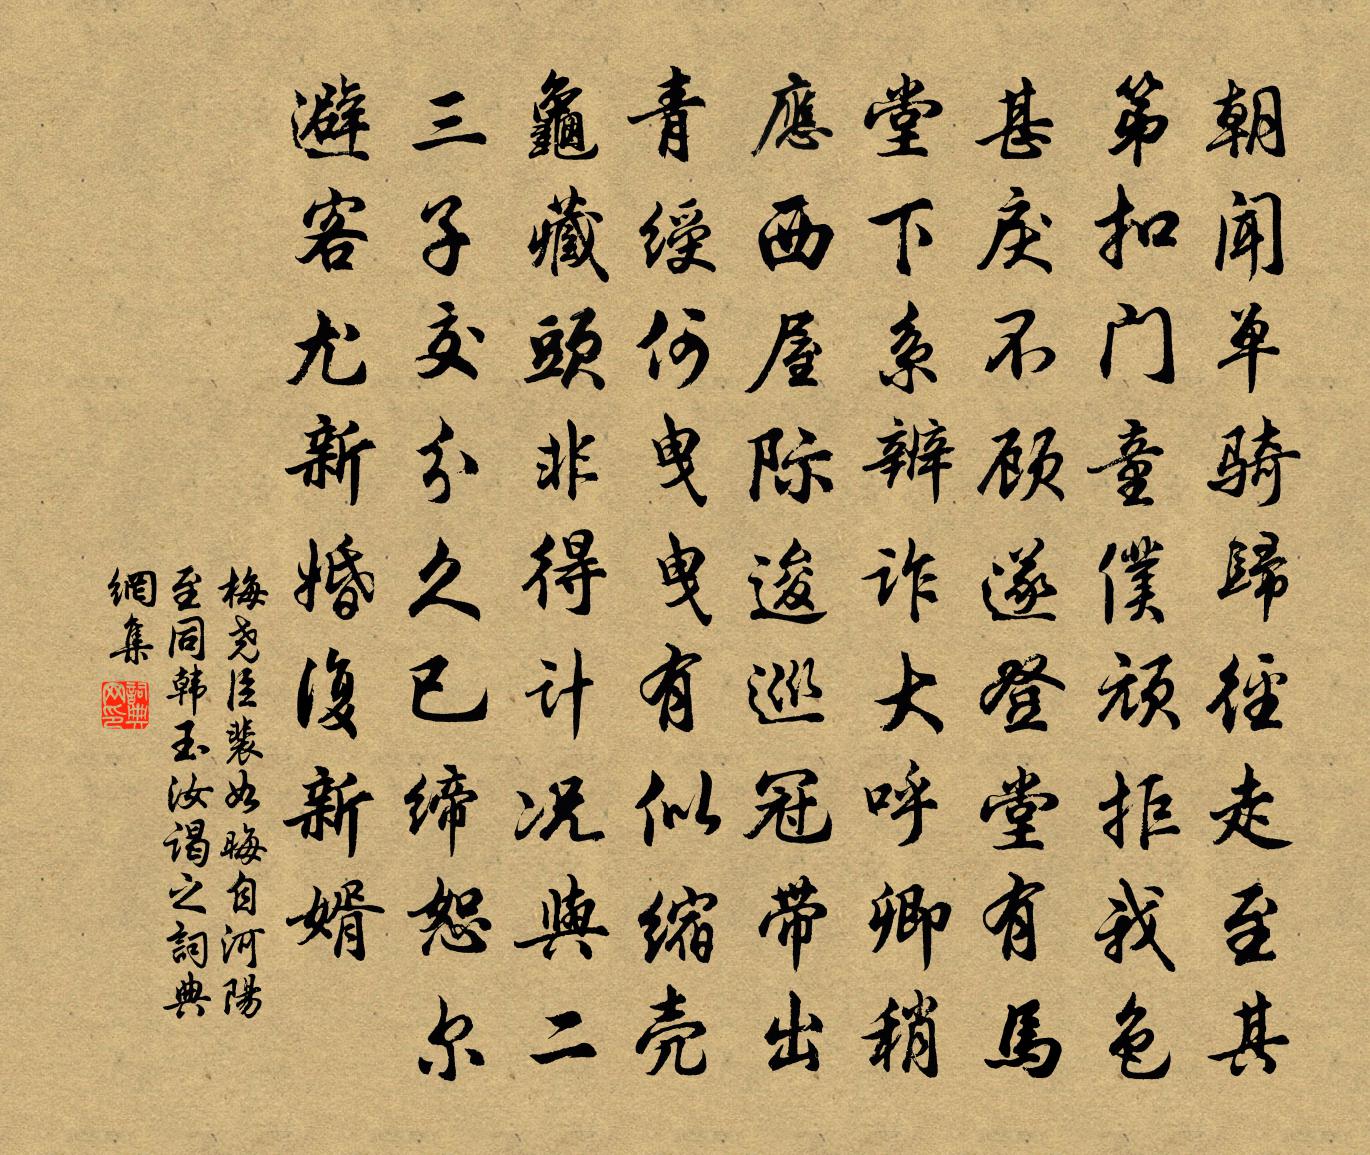 朝闻单骑歸径走至其
第扣门童僕顽拒我色
甚戾不顾遂登堂有馬
堂下系辨诈大呼卿稍
應西屋际逡巡冠带出
青绶何曳曳有似缩壳
龜藏頭非得计况與二
三子交分久已缔恕尔
避客尤新婚復新婿
梅尧臣裴如晦自河陽
至同韩玉汝谒之詞典
網集
詞典网印